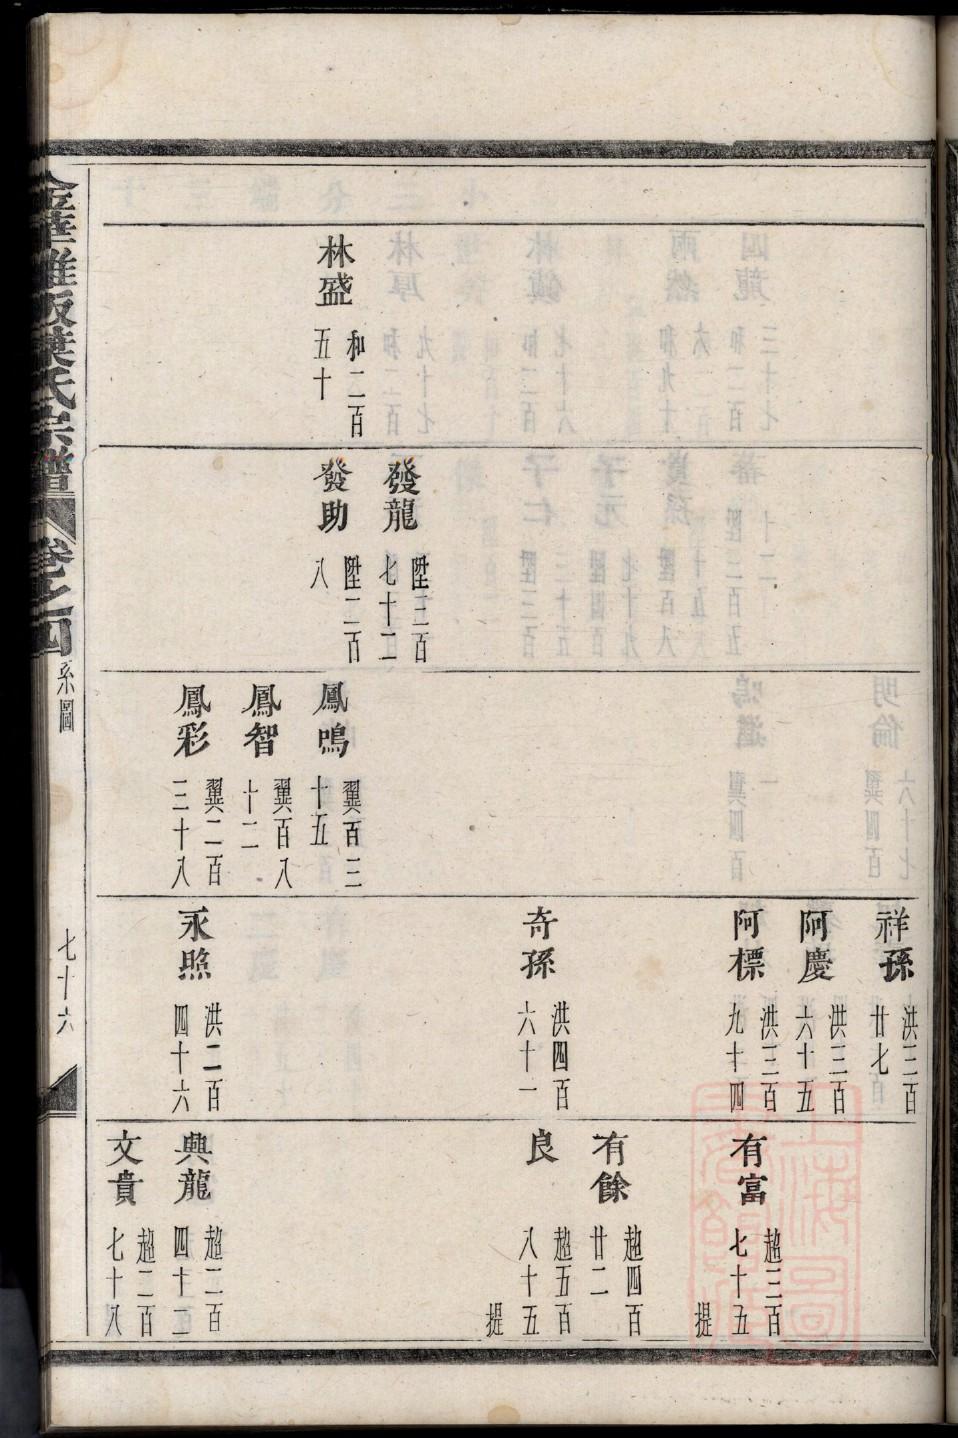 林盛 和二百五十
發龍 陞三百七十二
發助 陞二百八
鳳鳴 翼百三十五
鳳智 翼百八十二
鳳彩 翼二百三十八
祥孫 洪三百廿七
阿慶 洪三百六十五
阿標 洪三百九十四
奇孫 洪四百六十一
永煦 洪二百四十六
有富 趙三百七十五 提
有餘 趙四百廿二
良 趙五百八十五 提
興龍 趙二百四十一
文貴 趙二百七十八
葉氏宗譜 卷之四 系圖 七十六